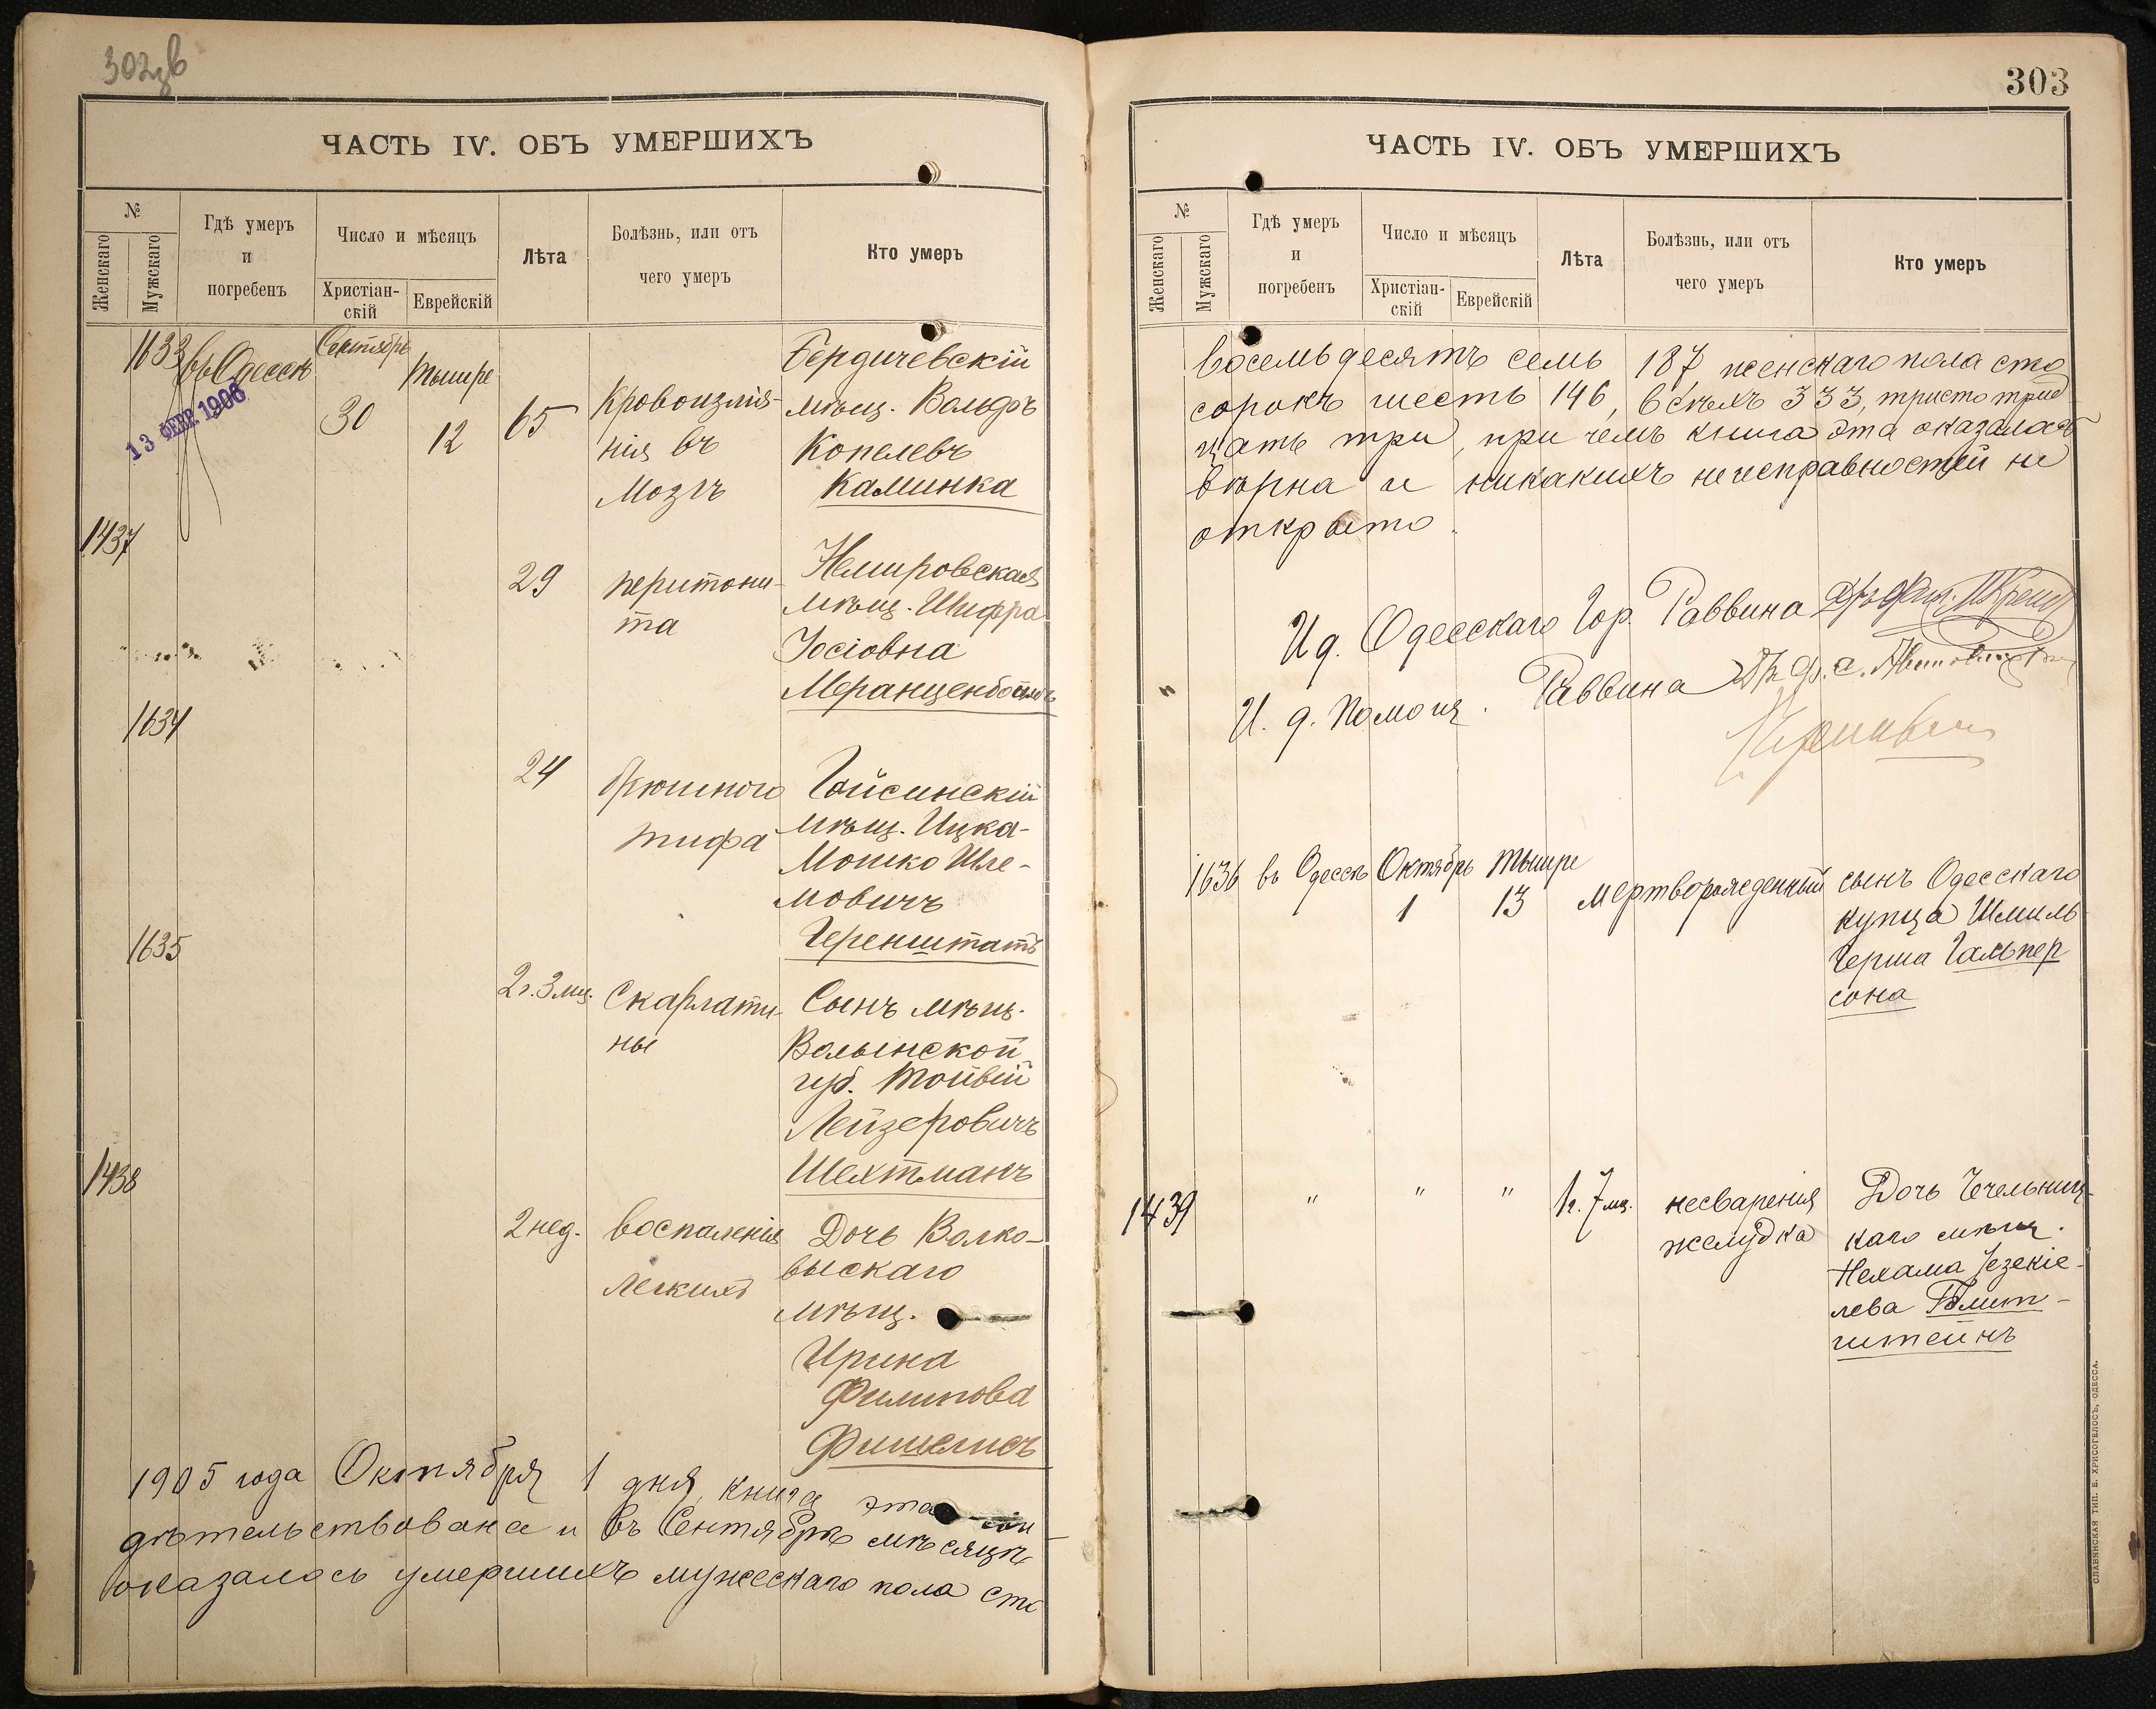 302 в
ЧАСТЬ IV. ОБЪ УМЕРШИХЪ
№
Женскаго
Мужскаго
Гдѣ умеръ
и
погребенъ
Число и мѣсяцъ
Христіан-
скій
Еврейскій
Лѣта
Болѣзнь, или отъ
чего умеръ
Кто умеръ
1633 въ Одессѣ Сентябрь 30 Тышре 12 65
13 ФЕВР 1906
Кровоизлія-
нія въ
Мозгъ
Бердичевскій
мѣщ. Вольфъ
Копелевъ
Каминка
1437
29
перитони-
та
Немировская
мѣщ. Шифра
Іосіовна
Меранценбоймъ
1634
24
брюшного
тифа
Гайсинскій
мѣщ. Ицка-
Мошко Шле-
мовичъ
Геренштатъ
1635
2г. 3 мц.
Скарлати-
ны
Сынъ мѣщ.
Волынской
губ. Тойвій
Лейзеровичъ
Шехтманъ
1438
2 нед.
воспаленія
легкихъ
Дочь Волко-
выскаго
мѣщ.
Ирина
Филипова
Фишелисъ
1905 года Октября 1 дня, книга эта сви-
дѣтельствована и въ Сентябрѣ мѣсяцѣ
оказалось умершихъ мужескаго пола сто
303
ЧАСТЬ IV. ОБЪ УМЕРШИХЪ
№
Женскаго
Мужскаго
Гдѣ умеръ
и
погребенъ
Число и мѣсяцъ
Христіан-
скій
Еврейскій
Лѣта
Болѣзнь, или отъ
чего умеръ
Кто умеръ
восемьдесятъ семь 187 женскаго пола сто
сорокъ шесть 146, всѣхъ 333, триста трид
цать три, при чемъ книга эта оказалась
вѣрна и никакихъ неисправностей не
открыто.
И д. Одесскаго Гор. Раввина
И. д. Помощ. Раввина
1636 въ Одессѣ Октябрь 1 Тышре 13 мертворожденный
сынъ Одесскаго
купца Шмиль
Герша Гальпер
сона
1439 " " " 1г. 7 мц.
несваренія
желудка
Дочь Чечельниц-
каго мѣщ.
Нехама Іезекіе-
лева
штейнъ
СЛАВЯНСКАЯ ТИП. Е. ХРИСОГЕЛОСЪ, ОДЕССА.